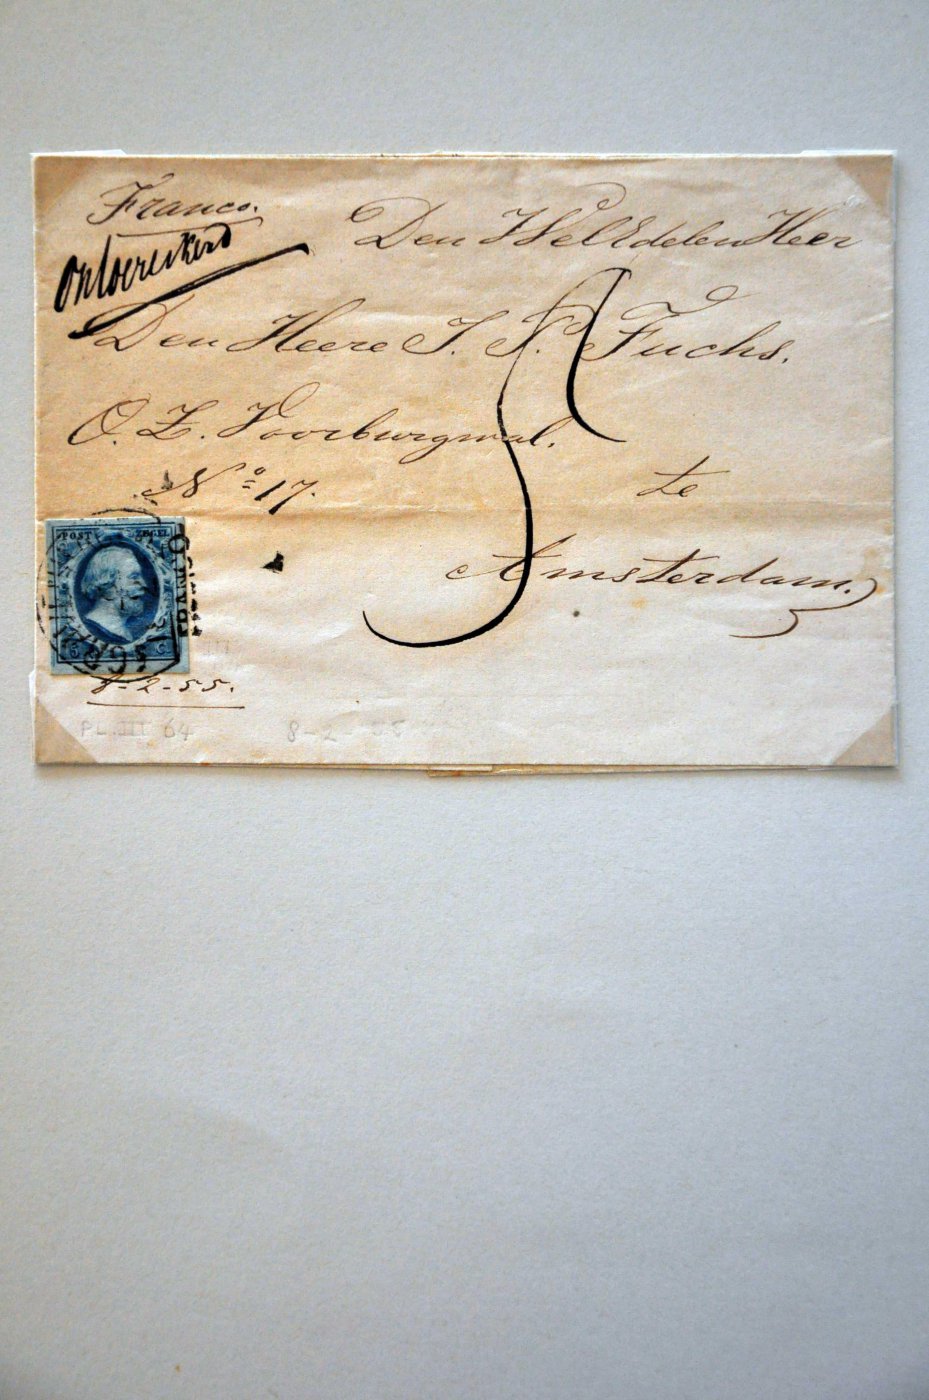 Franco.
Ontoereikend
Den WelEdelen Heer
Den Heere J. S. Fuchs.
O. Z. Voorburgwal.
No 17.
te
Amsterdam.
5
POST ZEGEL
5 C
8-2-55.
PL. III 64
8-2 55